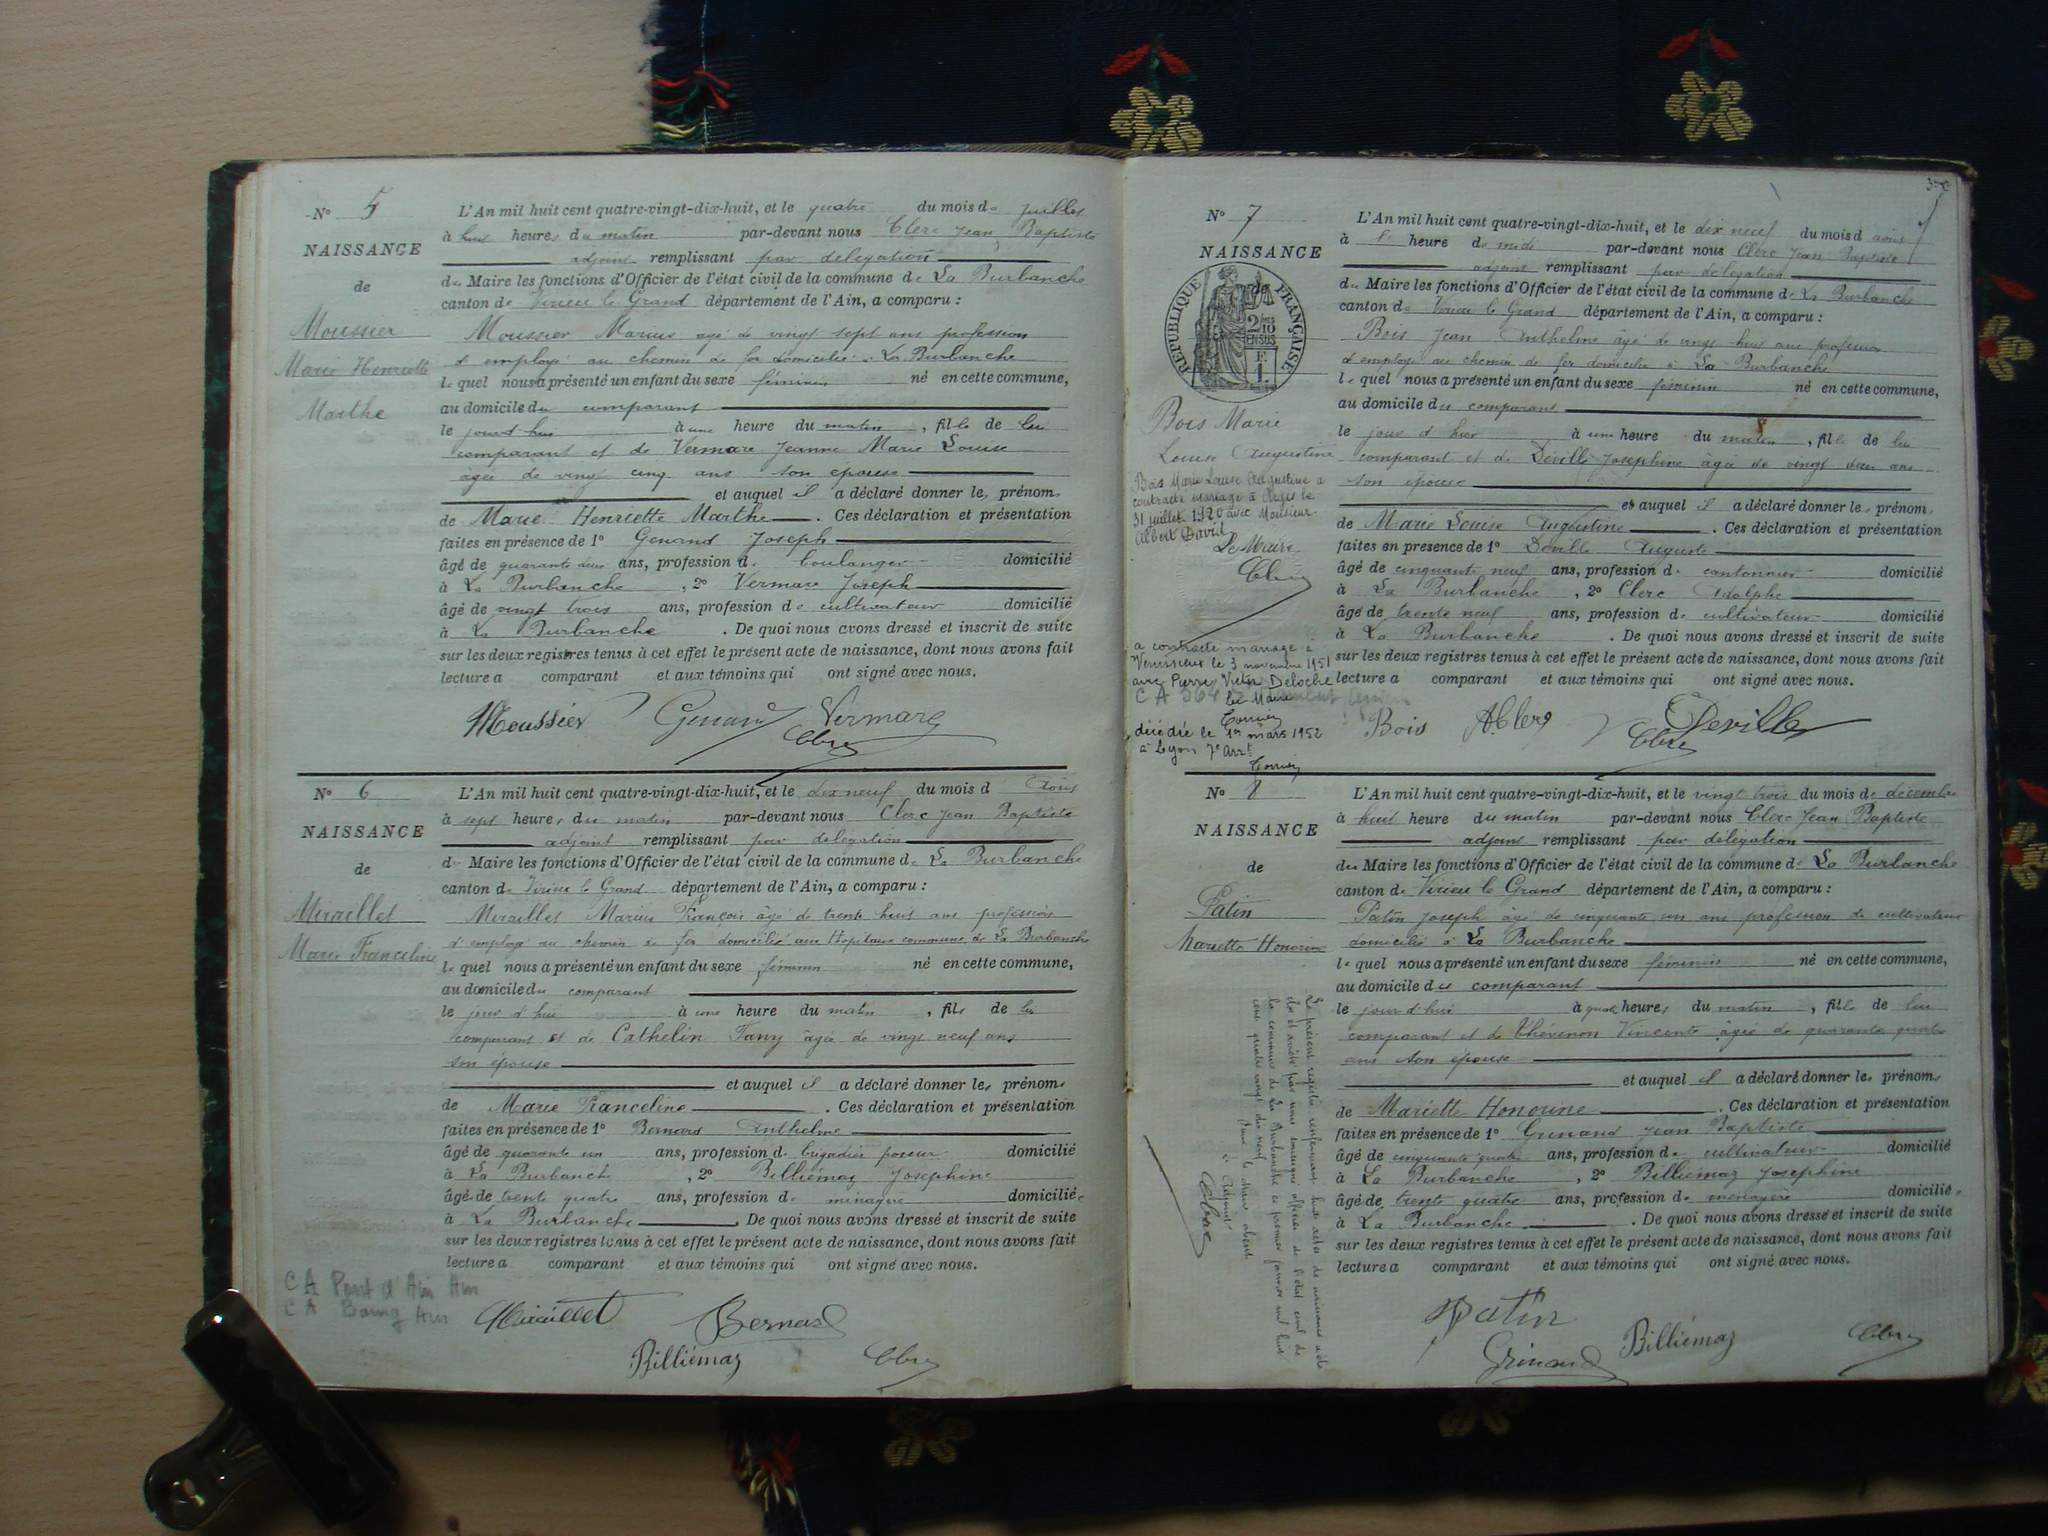 N° 5
NAISSANCE
de
Moussier
Marie Henriette
Marthe
L'An mil huit cent quatre-vingt-dix-huit, et le quatre du mois de Juillet
à huit heures du matin par-devant nous Clerc Jean Baptiste
adjoint remplissant par délégation
du Maire les fonctions d'Officier de l'état civil de la commune de La Burbanche
canton de Virieu le Grand département de l'Ain, a comparu :
Moussier Marius agé de vingt sept ans profession
d'employé au chemin de fer domicilié à La Burbanche
lequel nous a présenté un enfant du sexe féminin né en cette commune,
au domicile du comparant
le jourd'hui à une heure du matin, fille de lui
comparant et de Vermare Jeanne Marie Louise
âgée de vingt cinq ans son épouse
et auquel il a déclaré donner les prénoms
de Marie Henriette Marthe. Ces déclaration et présentation
faites en présence de 1° Genand Joseph
âgé de quarante deux ans, profession de boulanger domicilié
à La Burbanche, 2° Vermare Joseph
âgé de vingt trois ans, profession de cultivateur domicilié
à La Burbanche. De quoi nous avons dressé et inscrit de suite
sur les deux registres tenus à cet effet le présent acte de naissance, dont nous avons fait
lecture a comparant et aux témoins qui ont signé avec nous.
Moussier Genand Vermare
Clerc
N° 6
NAISSANCE
de
Miraillet
Marie Franceline
L'An mil huit cent quatre-vingt-dix-huit, et le dix neuf du mois d Août
à sept heures du matin par-devant nous Clerc Jean Baptiste
adjoint remplissant par délégation
du Maire les fonctions d'Officier de l'état civil de la commune de La Burbanche
canton de Virieu le Grand département de l'Ain, a comparu :
Miraillet Marius François âgé de trente huit ans profession
d'employé au chemin de fer domicilié aux Hopitaux commune de La Burbanche
lequel nous a présenté un enfant du sexe féminin né en cette commune,
au domicile du comparant
le jour d'hui à une heure du matin, fille de lui
comparant et de Cathelin Fany âgée de vingt neuf ans
son épouse
et auquel il a déclaré donner les prénoms
de Marie Franceline. Ces déclaration et présentation
faites en présence de 1° Bernard Anthelme
âgé de quarante un ans, profession de brigadier poseur domicilié
à La Burbanche, 2° Billiémaz Josephine
âgée de trente quatre ans, profession de ménagère domiciliée
à La Burbanche. De quoi nous avons dressé et inscrit de suite
sur les deux registres tenus à cet effet le présent acte de naissance, dont nous avons fait
lecture a comparant et aux témoins qui ont signé avec nous.
CA Pont d'Ain Ain
CA Ain
Miraillet Bernard
Billiémaz Clerc
N° 7
NAISSANCE
de
RÉPUBLIQUE FRANÇAISE
2/10 EN SUS
Bois Marie
Louise Augustine
Bois Marie Louise Augustine a
contracté mariage à Argis le
31 juillet 1920 avec Monsieur
Albert David
Le Maire
Clerc
a contracté mariage à
Vénissieux le 3 novembre 1951
avec Pierre Victor Deloche
CA 364
le Maire
décédée le 1er mars 1952
à Lyon 7e Arrt
L'An mil huit cent quatre-vingt-dix-huit, et le dix neuf du mois d août
à heure de midi par-devant nous Clerc Jean Baptiste
adjoint remplissant par délégation
du Maire les fonctions d'Officier de l'état civil de la commune de La Burbanche
canton de Virieu le Grand département de l'Ain, a comparu :
Bois Jean Anthelme âgé de vingt huit ans profession
d'employé au chemin de fer domicilié à La Burbanche
lequel nous a présenté un enfant du sexe féminin né en cette commune,
au domicile du comparant
le jour d'hier à une heure du matin, fille de lui
comparant et de Déville Josephine âgée de vingt deux ans
son épouse
et auquel il a déclaré donner les prénoms
de Marie Louise Augustine. Ces déclaration et présentation
faites en présence de 1° Déville Auguste
âgé de cinquante neuf ans, profession de cantonnier domicilié
à La Burbanche, 2° Clerc Adolphe
âgé de trente neuf ans, profession de cultivateur domicilié
à La Burbanche. De quoi nous avons dressé et inscrit de suite
sur les deux registres tenus à cet effet le présent acte de naissance, dont nous avons fait
lecture a comparant et aux témoins qui ont signé avec nous.
Bois A Clerc Deville
Clerc
N° 8
NAISSANCE
de
Patin
Mariette Honorine
L'An mil huit cent quatre-vingt-dix-huit, et le vingt trois du mois de décembre
à huit heure du matin par-devant nous Clerc Jean Baptiste
adjoint remplissant par délégation
du Maire les fonctions d'Officier de l'état civil de la commune de La Burbanche
canton de Virieu le Grand département de l'Ain, a comparu :
Patin Joseph âgé de cinquante un ans profession de cultivateur
domicilié à La Burbanche
lequel nous a présenté un enfant du sexe féminin né en cette commune,
au domicile du comparant
le jour d'hui à quatre heures du matin, fille de lui
comparant et de Thévenon Vincente âgée de quarante quatre
ans son épouse
et auquel il a déclaré donner les prénoms
de Mariette Honorine. Ces déclaration et présentation
faites en présence de 1° Grinand Jean Baptiste
âgé de cinquante quatre ans, profession de cultivateur domicilié
à La Burbanche, 2° Billiémaz Josephine
âgée de trente quatre ans, profession de ménagère domiciliée
à La Burbanche. De quoi nous avons dressé et inscrit de suite
sur les deux registres tenus à cet effet le présent acte de naissance, dont nous avons fait
lecture a comparant et aux témoins qui ont signé avec nous.
Patin Billiémaz Clerc
Grinand
Le présent registre renfermant huit actes de naissance a été
clos et arrêté par nous soussigné officier de l'état civil de
la commune de La Burbanche ce premier janvier mil huit
cent quatre vingt dix neuf
Pour le Maire absent
L'Adjoint
Clerc